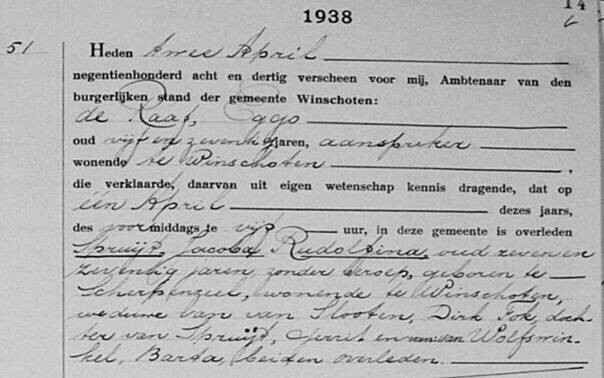 14
1938 6
51 Heden twee April
negentienhonderd acht en dertig verscheen voor mij, Ambtenaar van den
burgerlijken stand der gemeente Winschoten:
de Raaf, Eggo
oud vijf en zeventig jaren, aanspreker
wonende te Winschoten,
die verklaarde, daarvan uit eigen wetenschap kennis dragende, dat op
één April dezes jaars,
des voormiddags te vijf uur, in deze gemeente is overleden
Spruijt, Jacoba Rudolfina, oud zeven en
zeventig jaren, zonder beroep, geboren te
Scherpenzeel, wonende te Winschoten,
weduwe van van Slooten, Dirk Fok, doch-
ter van Spruijt, Gerrit en van Wolfswin-
kel, Barta, beiden overleden.